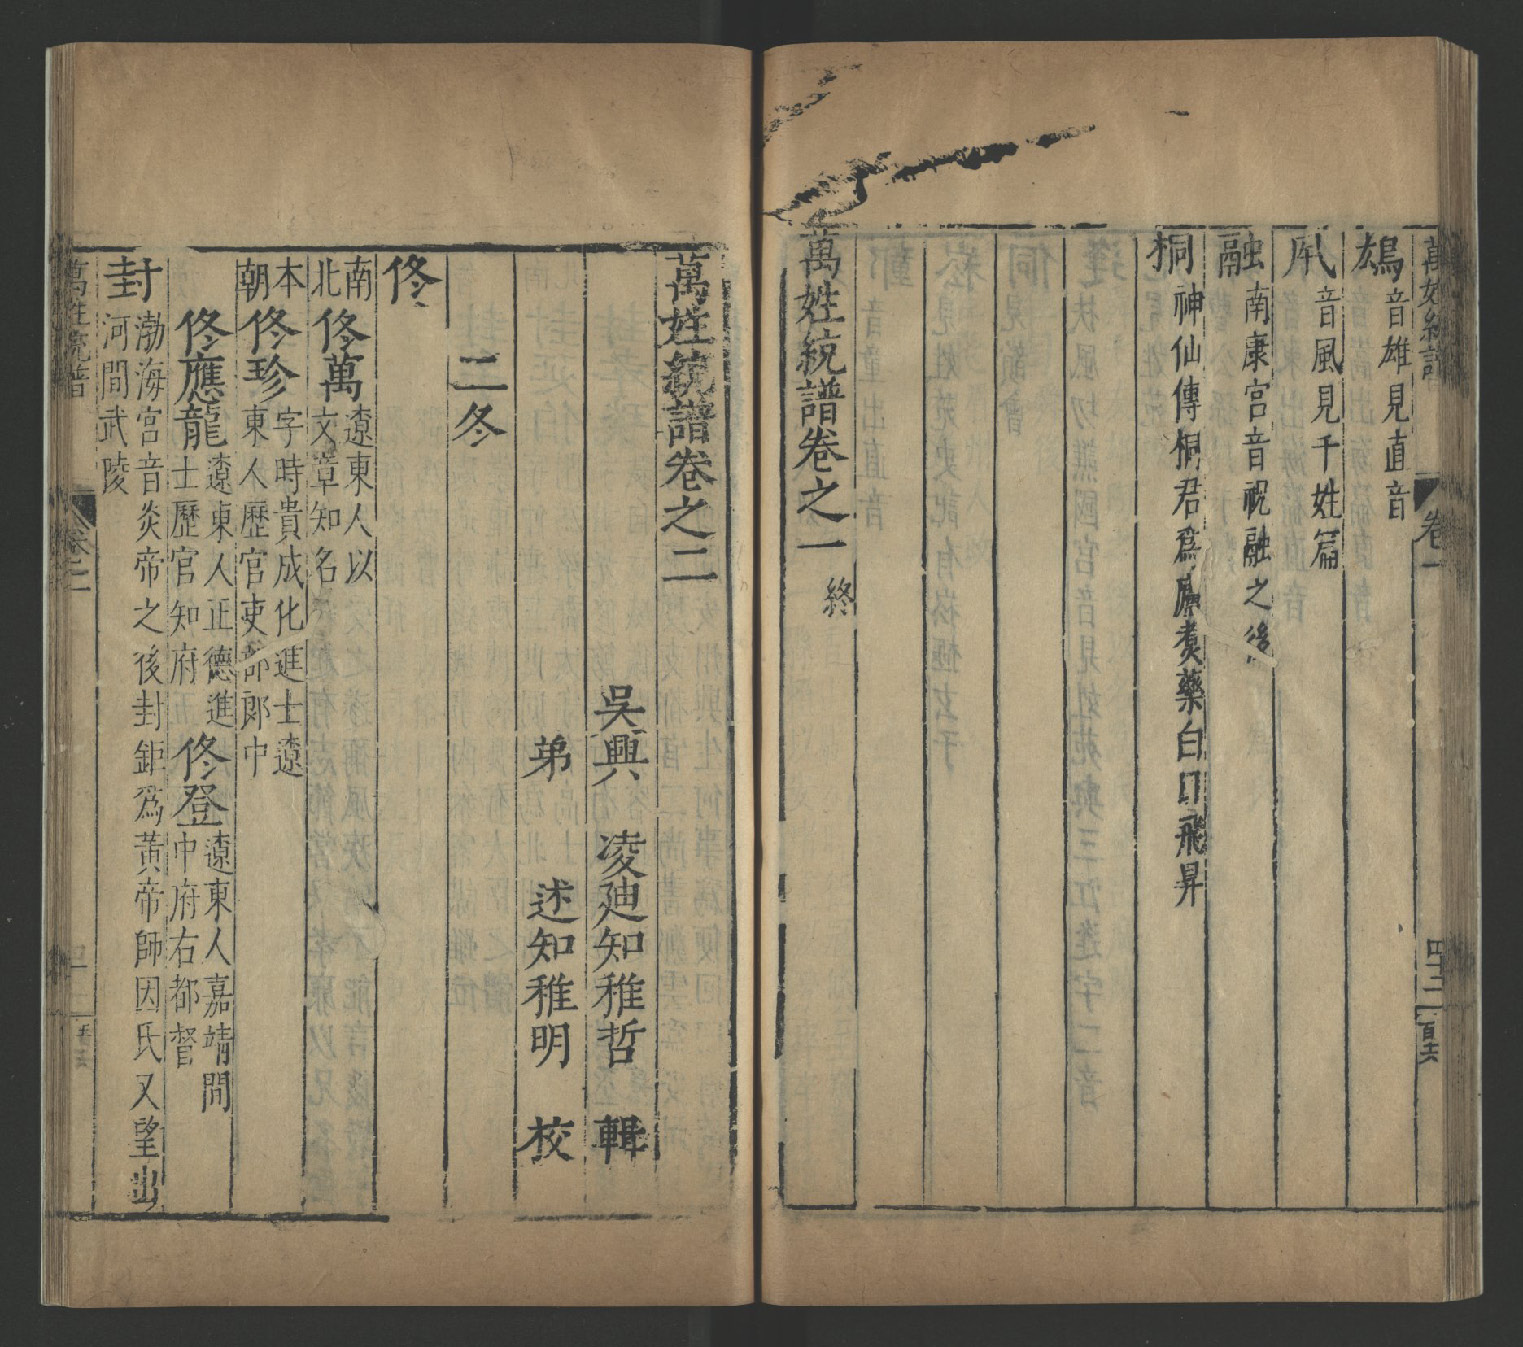 萬姓統譜 卷一 四十二
鴆音雄見直音
凩音風見千姓篇
融南康宮音祝融之後
桐神仙傳桐君爲廩煑藥白日飛昇
萬姓統譜卷之一 終
萬姓統譜卷之二
吳興 凌廸知稚哲 輯
弟 述知稚明 校
二冬
佟
南北 佟萬 遼東人以文章知名
本朝 佟珍 字時貴成化進士遼東人歷官吏部郎中
佟應龍 遼東人正德進士歷官知府 佟登 遼東人嘉靖間中府右都督
封 渤海宮音炎帝之後封鉅爲黃帝師因氏又望出河間武陵
萬姓統譜 卷之二